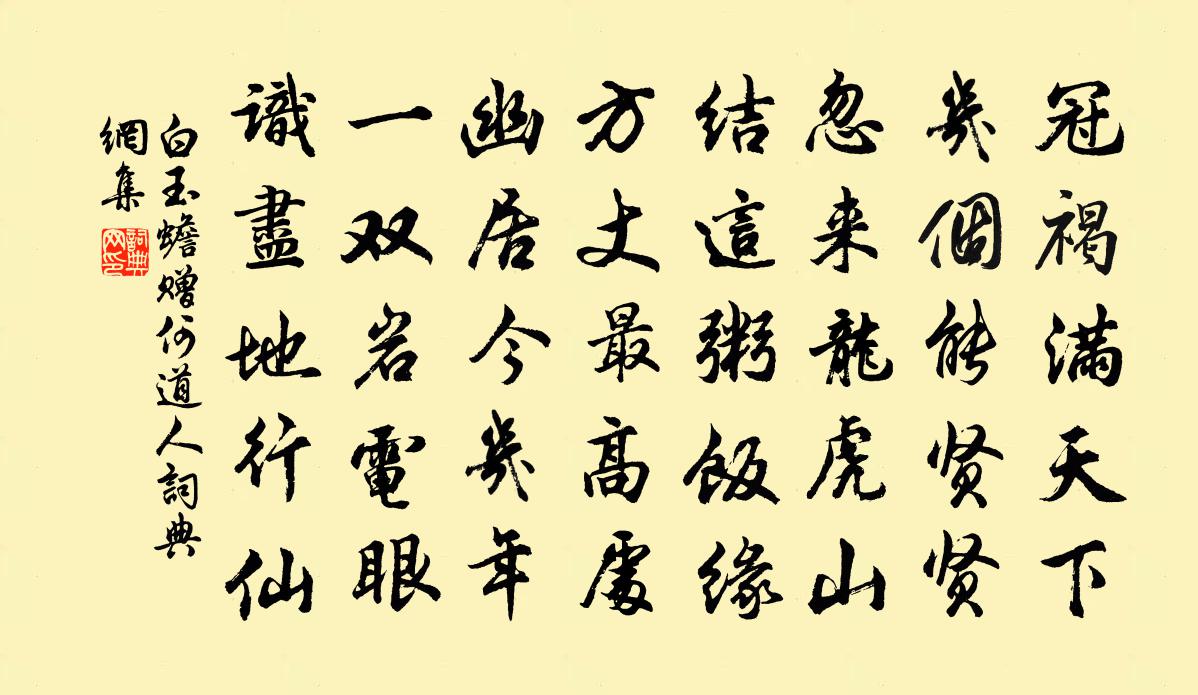 冠褐满天下
幾個能贤贤
忽来龍虎山
結這粥飯缘
方丈最高處
幽居今幾年
一双岩電眼
識盡地行仙
白玉蟾赠何道人詞典
網集
詞典
网印